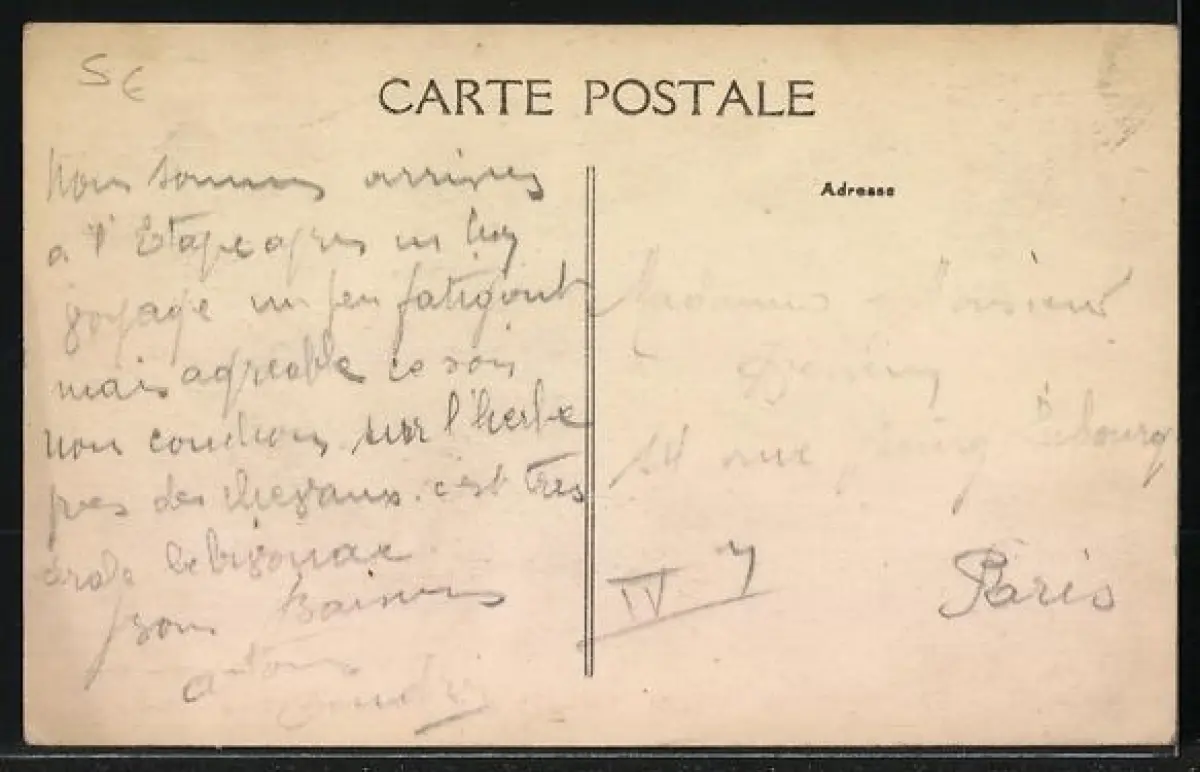 5 €
CARTE POSTALE
Adresse
Nous sommes arrives
a l'Etape apres un long
voyage un peu fatigant
mais agreable ce soir
nous couchons sur l'herbe
pres des chevaux. c'est très
drole le bivouac
bons Baisers
Madame Monsieur
14 rue
Paris
IV